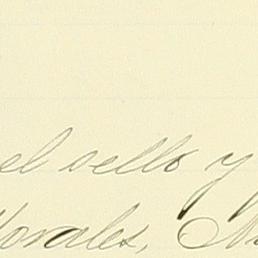 el sello y
Morales,